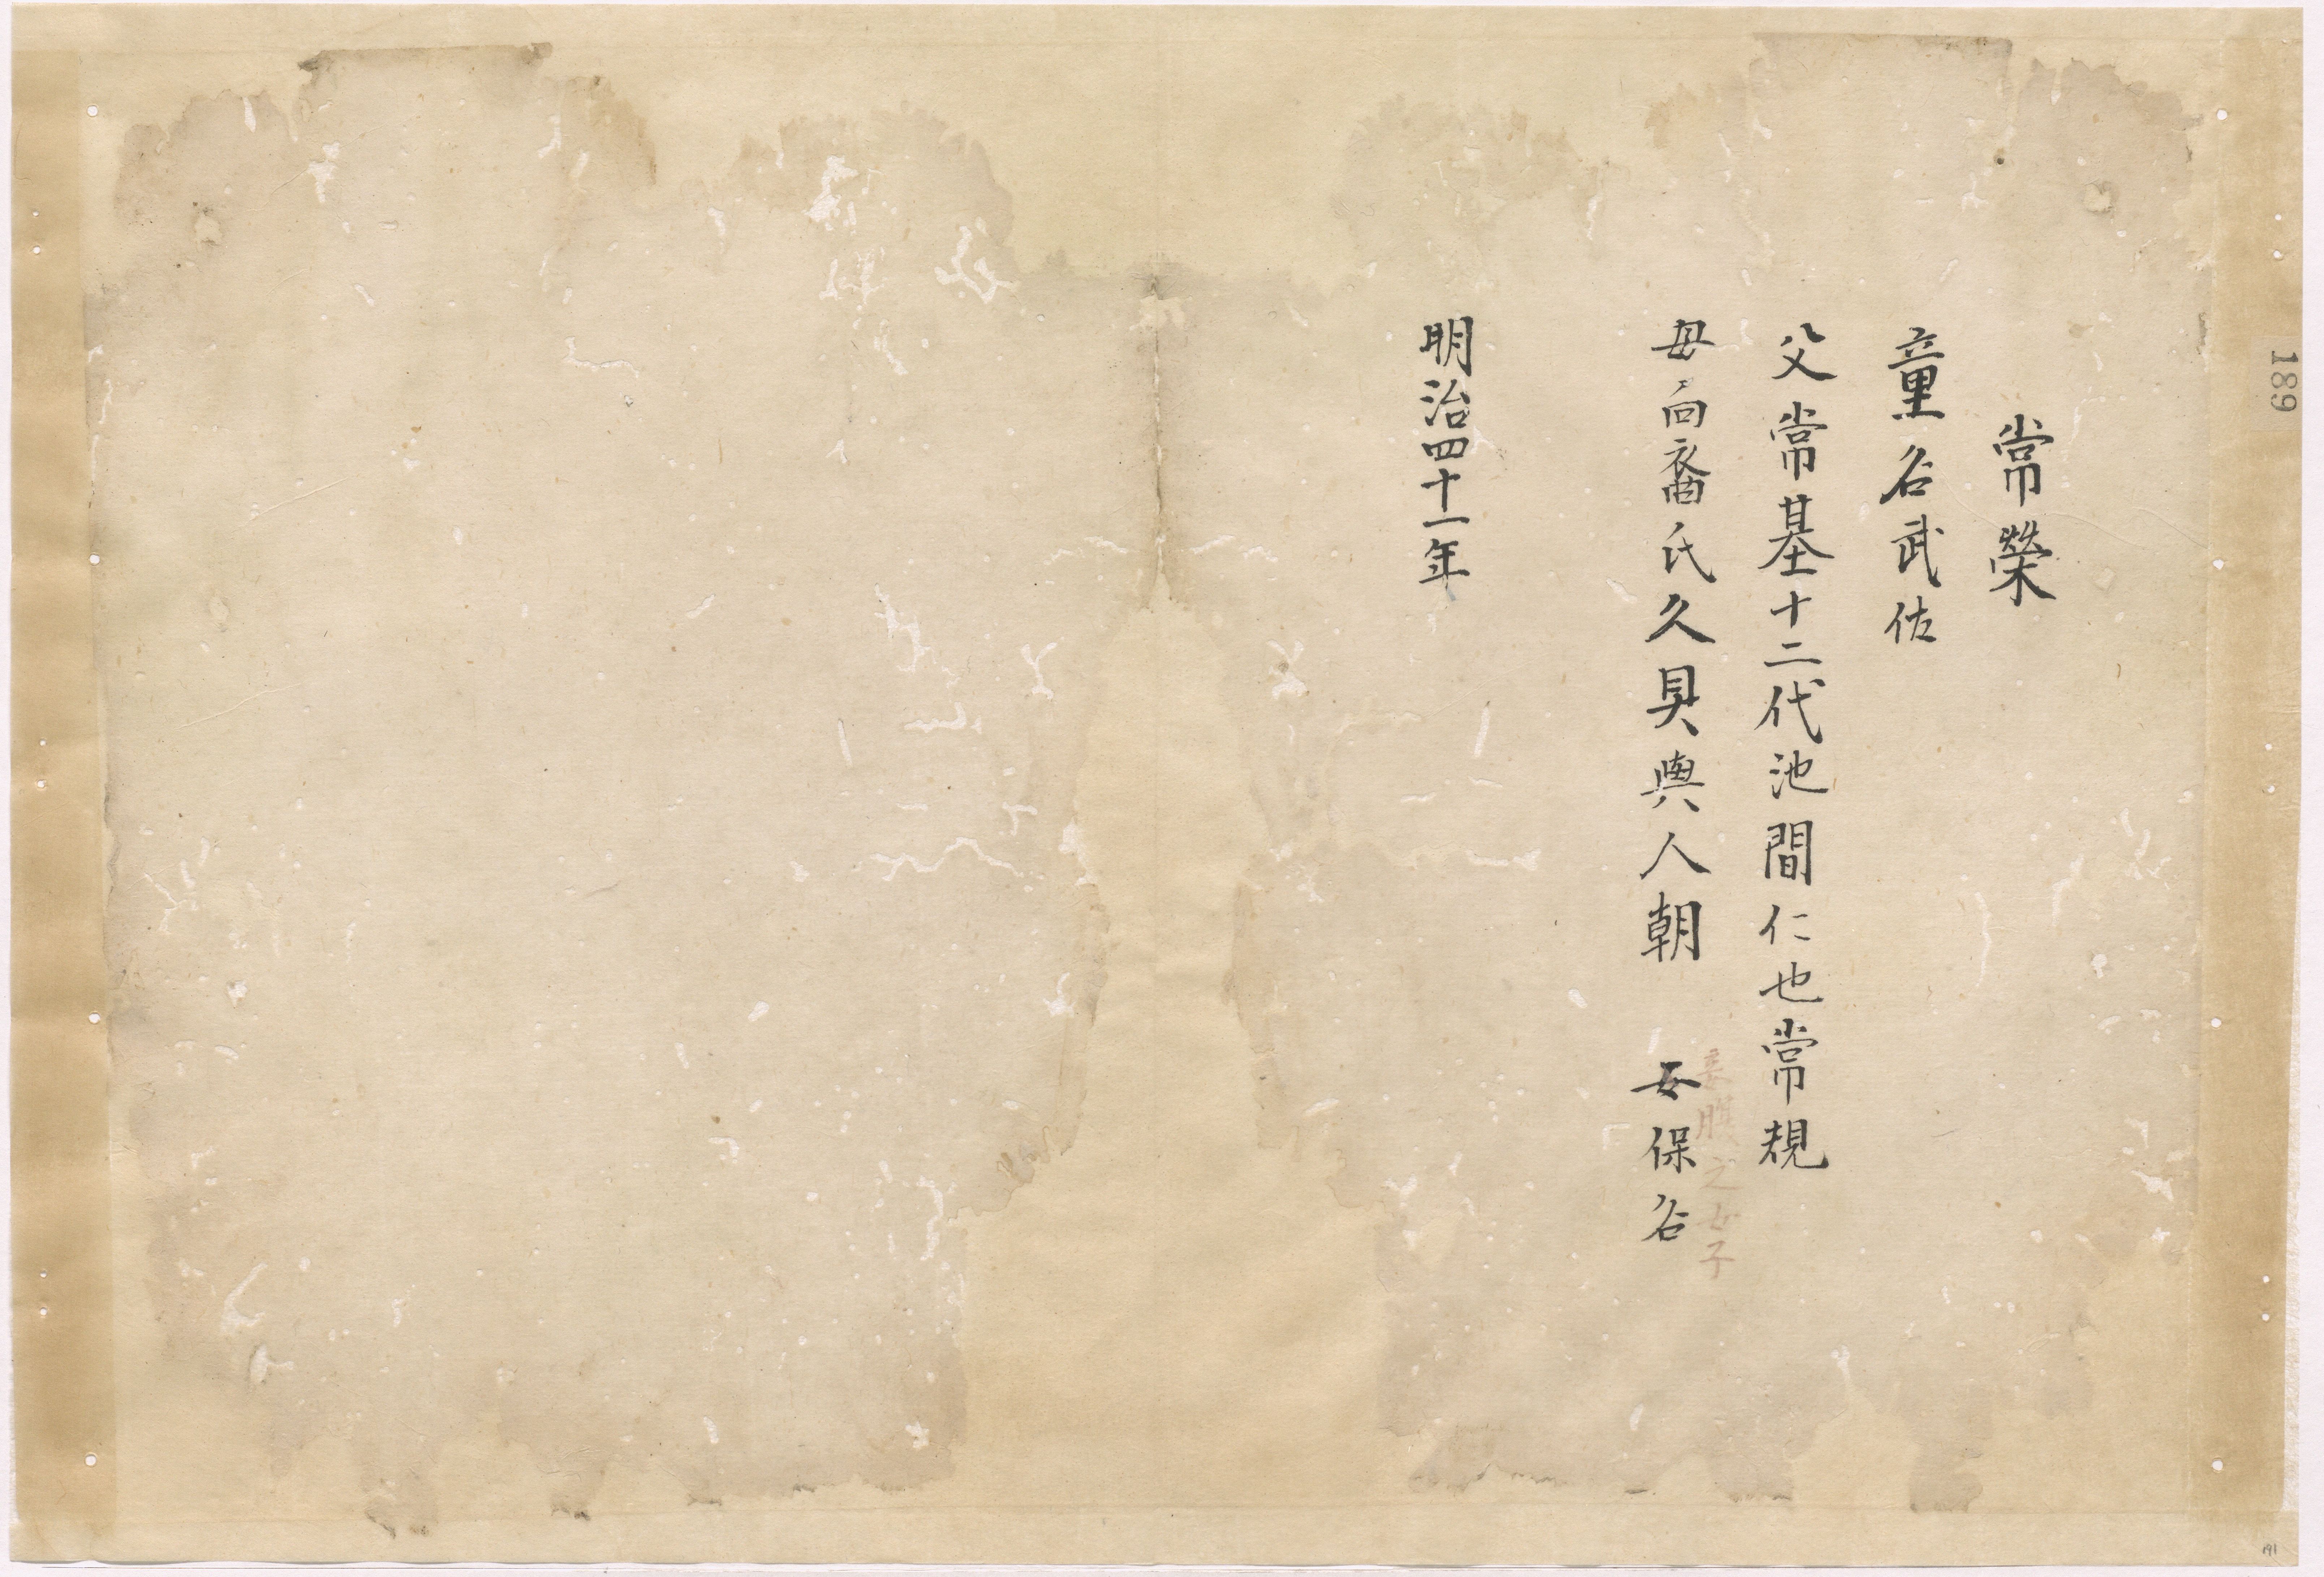 常榮
童名武佐
父常基十二代池間仁也常規
母向裔氏久貝與人朝 女保谷
妾腹之女子
明治四十一年
189
191